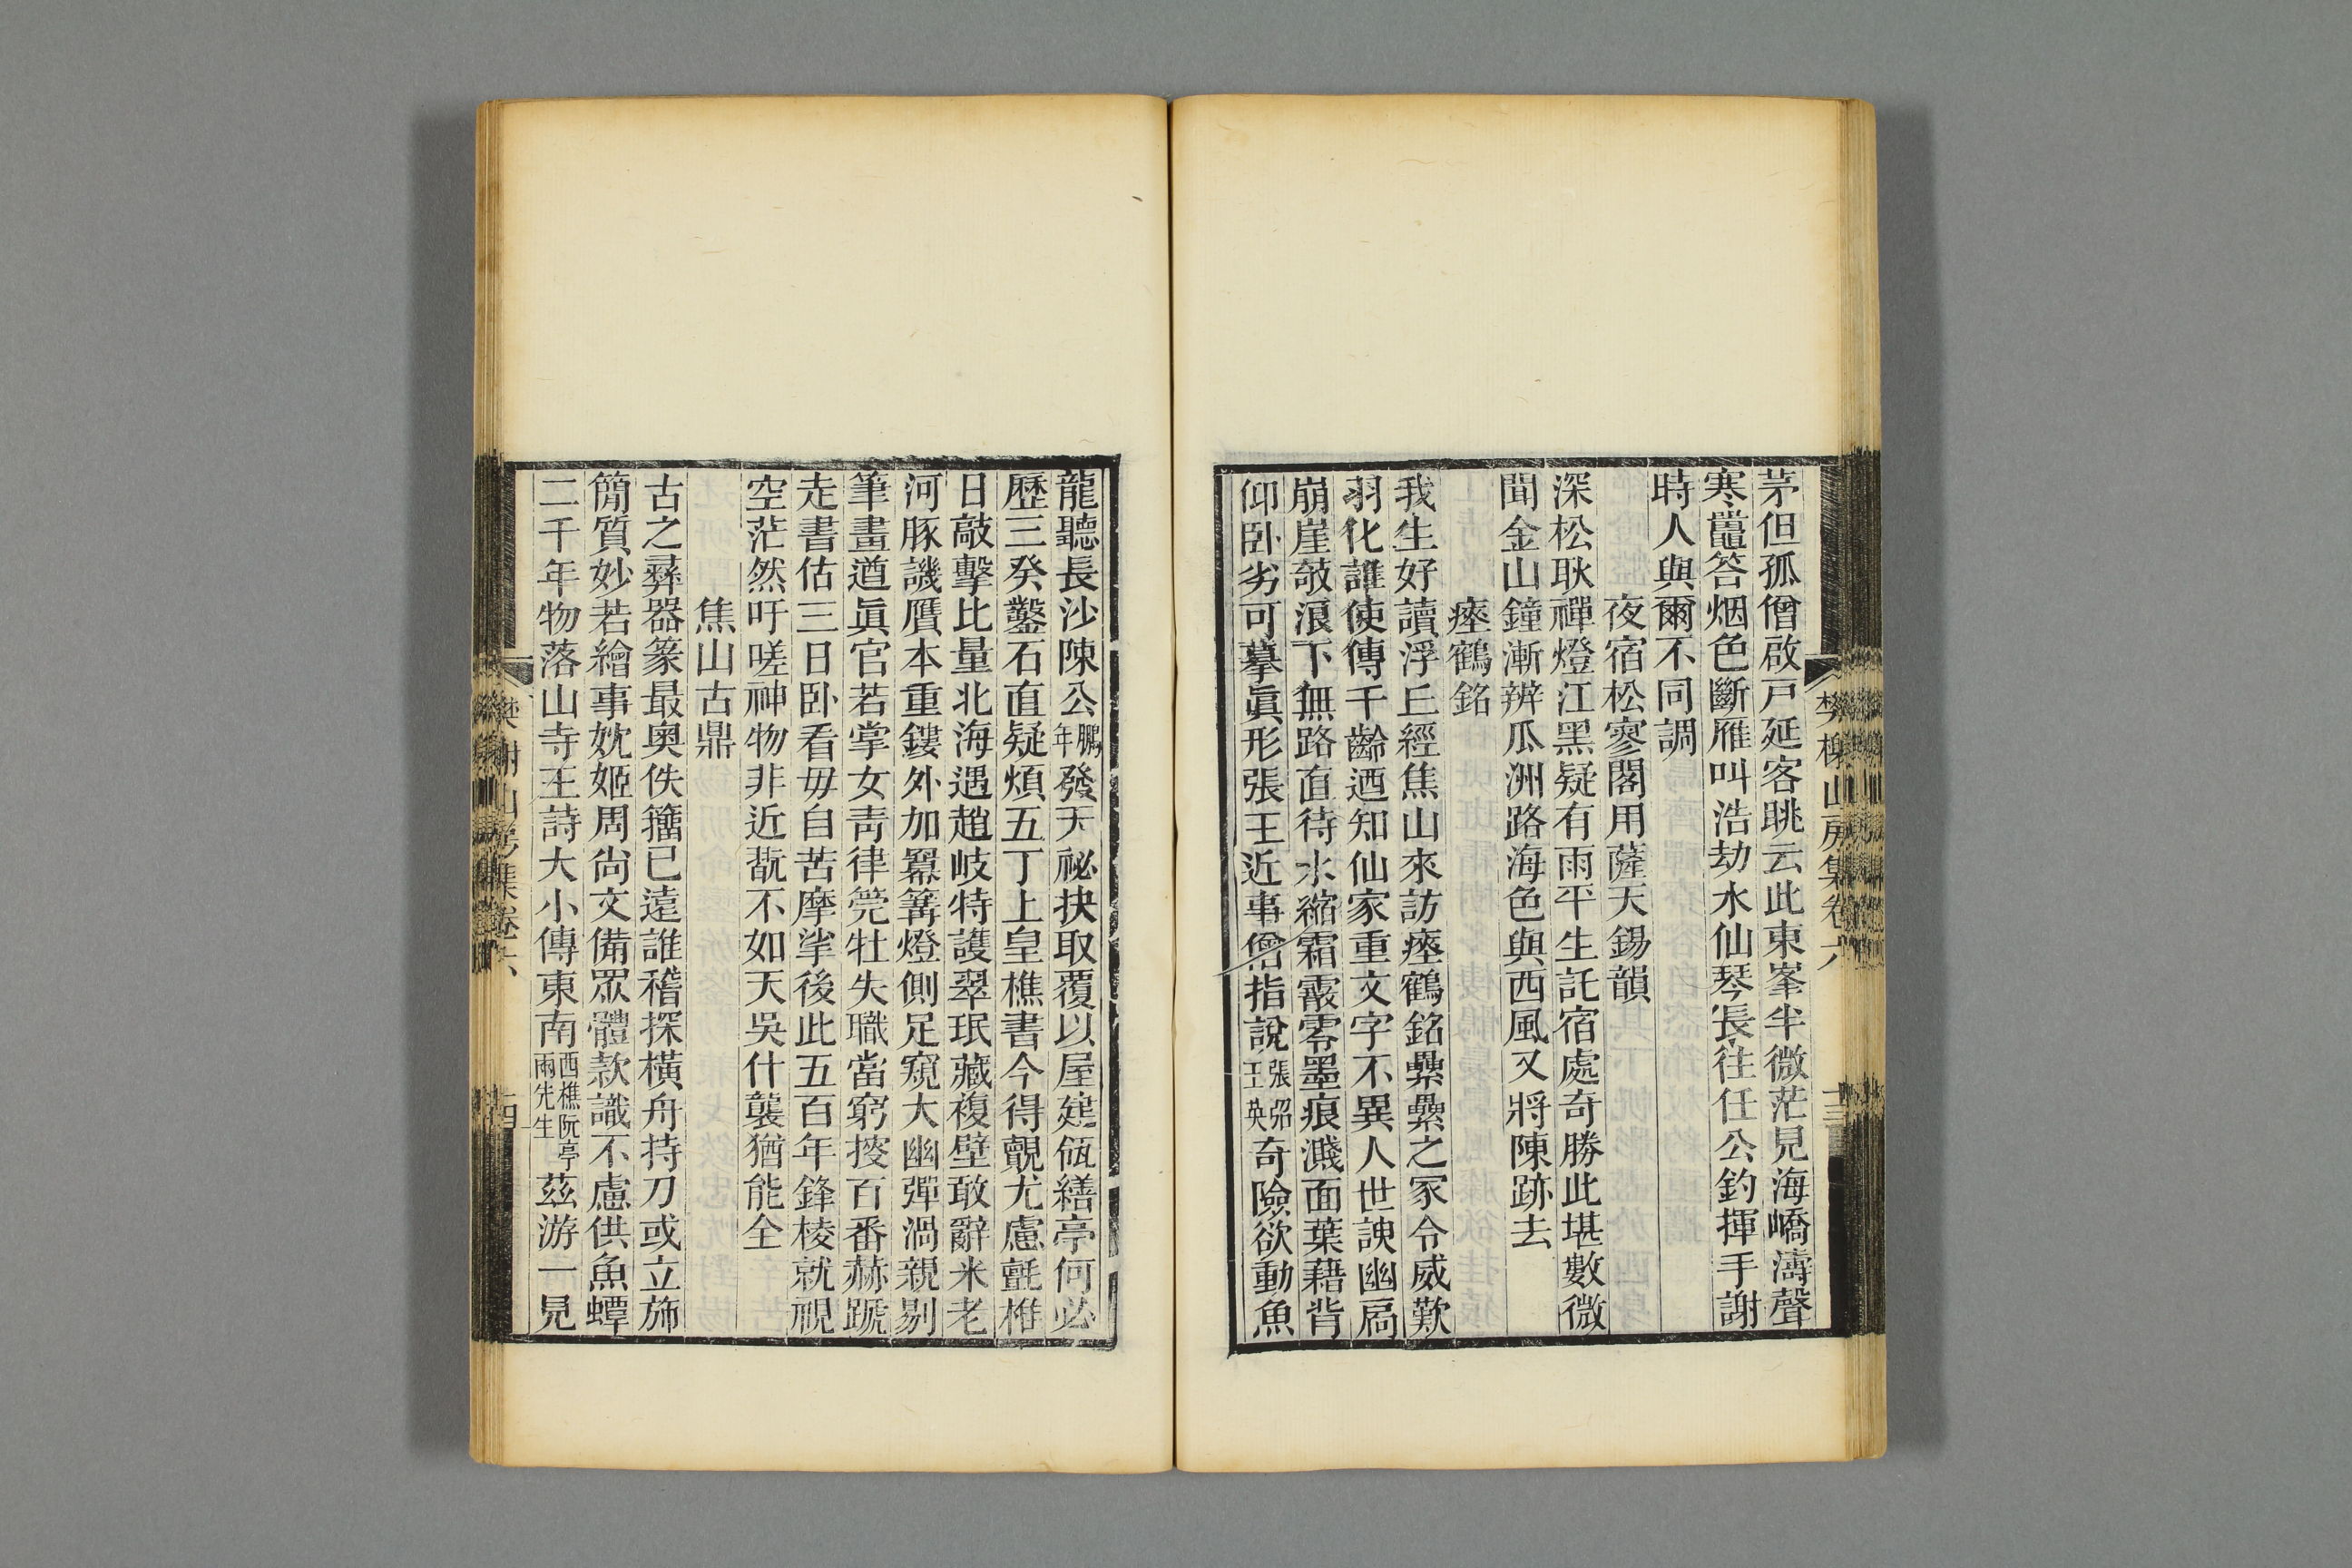 茅但孤僧啟戸延客眺云此東峯半微茫見海嶠濤聲
寒鼉答烟色斷雁叫浩劫水仙琴長往任公釣揮手謝
時人與爾不同調
夜宿松寥閣用薩天錫韻
深松耿禪燈江黑疑有雨平生託宿處奇勝此堪數微
聞金山鐘漸辨瓜洲路海色與西風又將陳跡去
瘞鶴銘
我生好讀浮丘經焦山來訪瘞鶴銘纍纍之冢令威歎
羽化誰使傳千齡迺知仙家重文字不異人世諛幽扃
崩崖敧浪下無路直待水縮霜霰零墨痕濺面葉藉背
仰卧劣可摹眞形張王近事僧指說張弨王英奇險欲動魚
樊榭山房集卷六
十三
龍聽長沙陳公鵬年發天祕抉取覆以屋建瓴繕亭何必
歷三癸鑿石直疑煩五丁上皇樵書今得覿尤慮氈椎
日敲擊比量北海遇趙岐特護翠珉藏複壁敢辭米老
河豚譏贋本重鏤外加羃篝燈側足窺大幽彈渦親剔
筆畫遒眞官若掌女靑律筦牡失職當窮搜百番赫蹏
走書估三日卧看毋自苦摩挲後此五百年鋒棱就視
空茫然吁嗟神物非近翫不如天吳什襲猶能全
焦山古鼎
古之彝器篆最奧佚籒已遠誰稽探橫舟持刀或立斾
簡質妙若繪事妉姬周尙文備眾體款識不慮供魚蟫
二千年物落山寺王詩大小傳東南西樵阮亭兩先生茲游一見
樊榭山房集卷六
十四